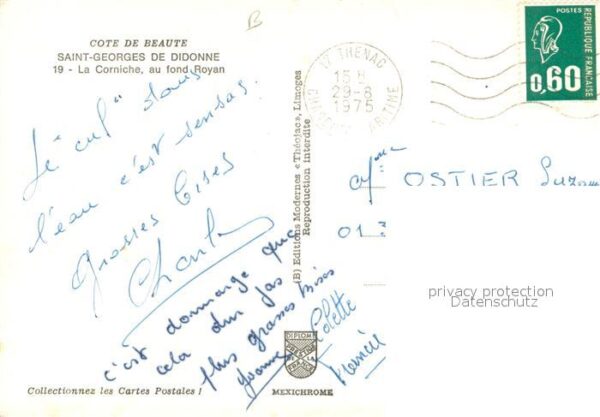 COTE DE BEAUTE
SAINT-GEORGES DE DIDONNE
19 - La Corniche, au fond Royan
B
Le "cul" dans
l'eau c'est sensas.
grosses bises
c'est dommage que
cela dur pas
plus grosses bises
Yvonne Colette
(B) Editions Modernes « Théojac », Limoges
Reproduction Interdite
DIPLOME
MEXICHROME
Collectionnez les Cartes Postales !
17 THENAC
15 H
29-8
1975
POSTES
REPUBLIQUE FRANÇAISE
0,60
Mme OSTIER Suzan
013
privacy protection
Datenschutz